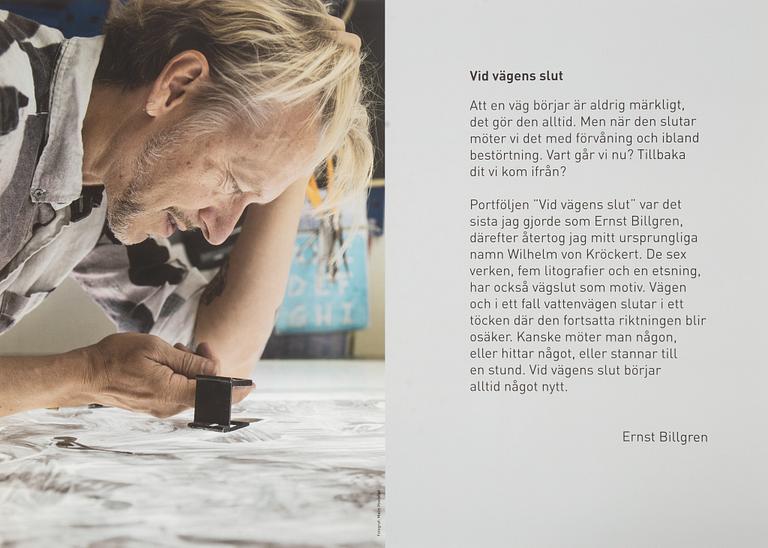 Vid vägens slut
Att en väg börjar är aldrig märkligt,
det gör den alltid. Men när den slutar
möter vi det med förvåning och ibland
bestörtning. Vart går vi nu? Tillbaka
dit vi kom ifrån?
Portföljen ”Vid vägens slut” var det
sista jag gjorde som Ernst Billgren,
därefter återtog jag mitt ursprungliga
namn Wilhelm von Kröckert. De sex
verken, fem litografier och en etsning,
har också vägslut som motiv. Vägen
och i ett fall vattenvägen slutar i ett
töcken där den fortsatta riktningen blir
osäker. Kanske möter man någon,
eller hittar något, eller stannar till
en stund. Vid vägens slut börjar
alltid något nytt.
Ernst Billgren